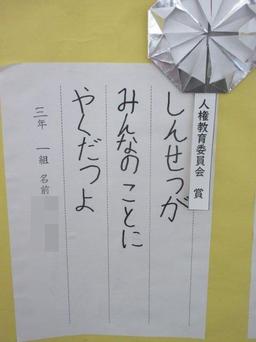 人権教育委員会 賞
しんせつが
みんなのことに
やくだつよ
三年 一組 名前